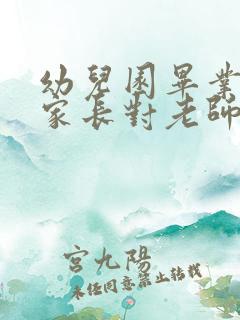 幼兒園畢業
家長對老師
宮九陽
未經同意禁止轉載